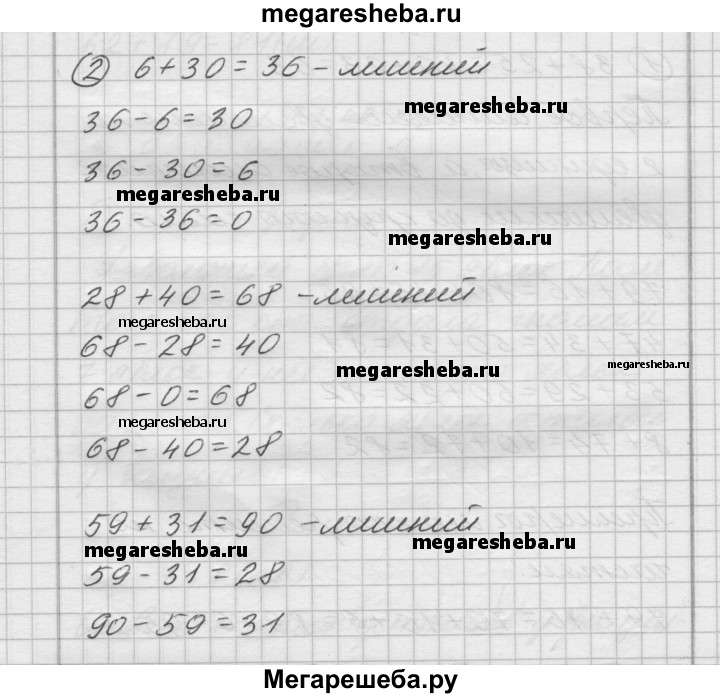 megaresheba.ru
② 6+30=36 - лишний
megaresheba.ru
36-6=30
36-30=6
megaresheba.ru
36-36=0
megaresheba.ru
28+40=68 - лишний
megaresheba.ru
68-28=40
megaresheba.ru
megaresheba.ru
68-0=68
megaresheba.ru
68-40=28
59+31=90 - лишний
megaresheba.ru
megaresheba.ru
59-31=28
90-59=31
Мегарешеба.ру